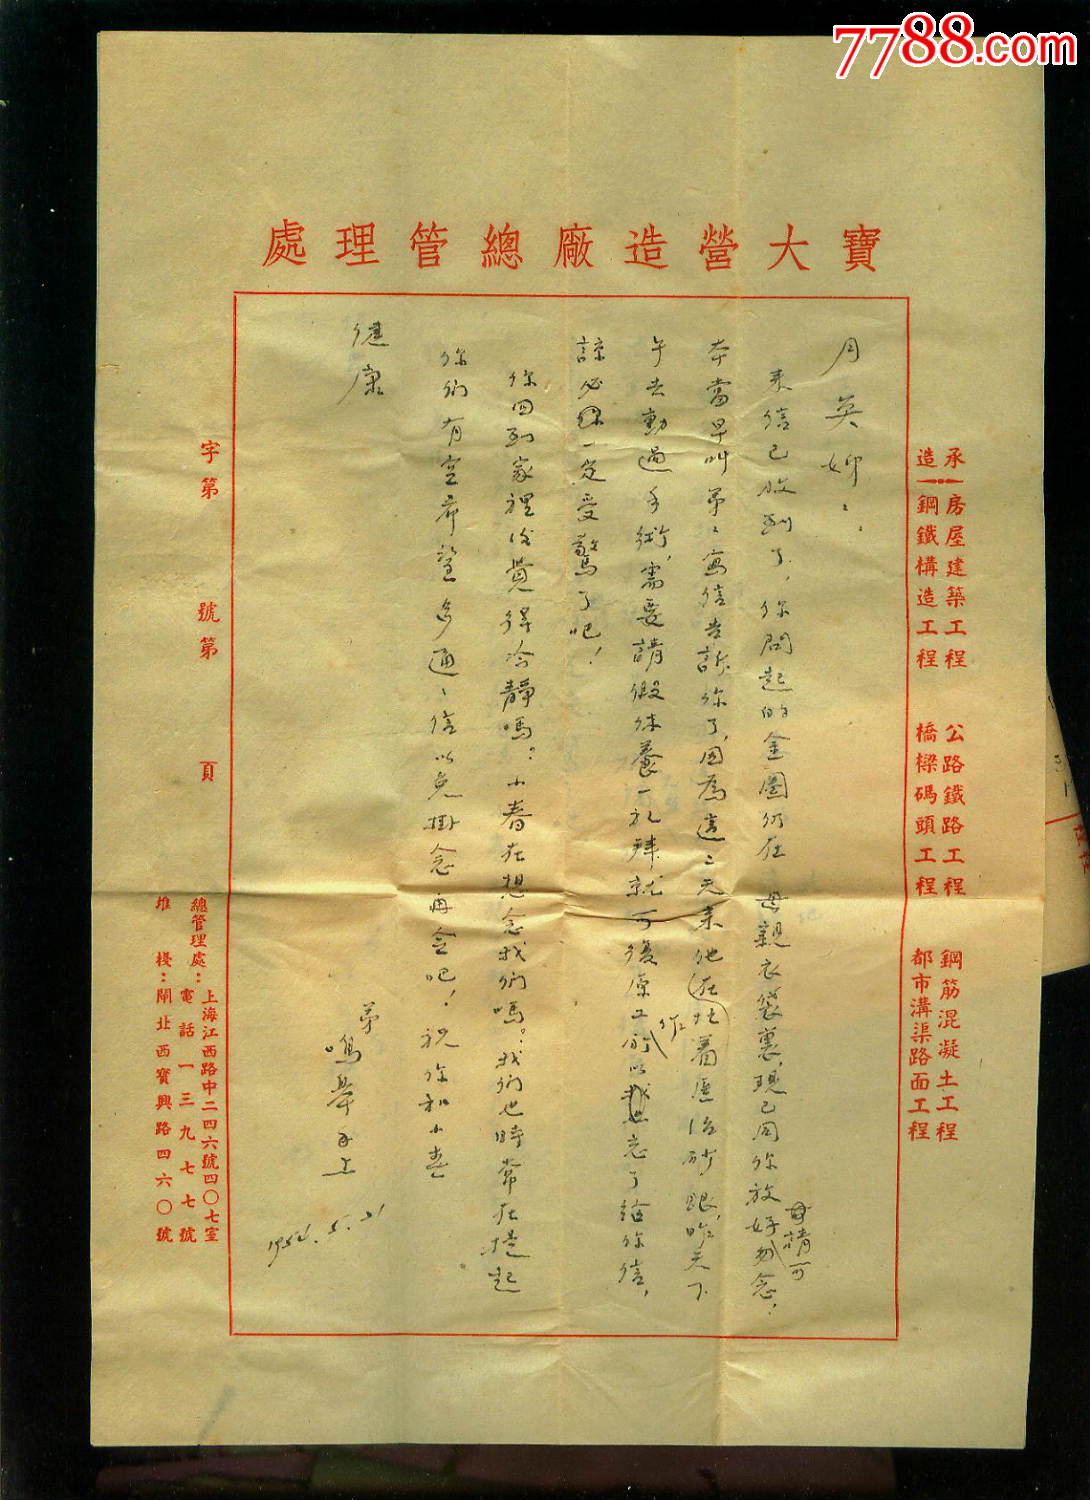 7788.com
寶大營造廠總管理處
承造
房屋建築工程 公路鐵路工程 鋼筋混凝土工程
鋼鐵構造工程 橋樑碼頭工程 都市溝渠路面工程
月英姊:
來信已收到了,你問起的金圈仍在母親衣袋裏,現已同你放好請可勿念,
本當早叫弟弟寫信告訴你了,因為這二天來他在忙着醫治砂眼,昨天下
午去動過手術,需要請假休養一礼拜就可復原工作所以忘了給你信,
諒必你一定受驚了吧!
你回到家裡後覺得冷靜嗎?小春在想念我們嗎?我們也時常在提起
你們有空希望多通通信以免掛念再會吧!祝你和小春
健康
弟
鳴舉手上
1952.5.21
字第 號第 頁
總管理處:上海江西路中二四六號四〇七室
電話一三九七七號
堆棧:閘北西寶興路四六〇號